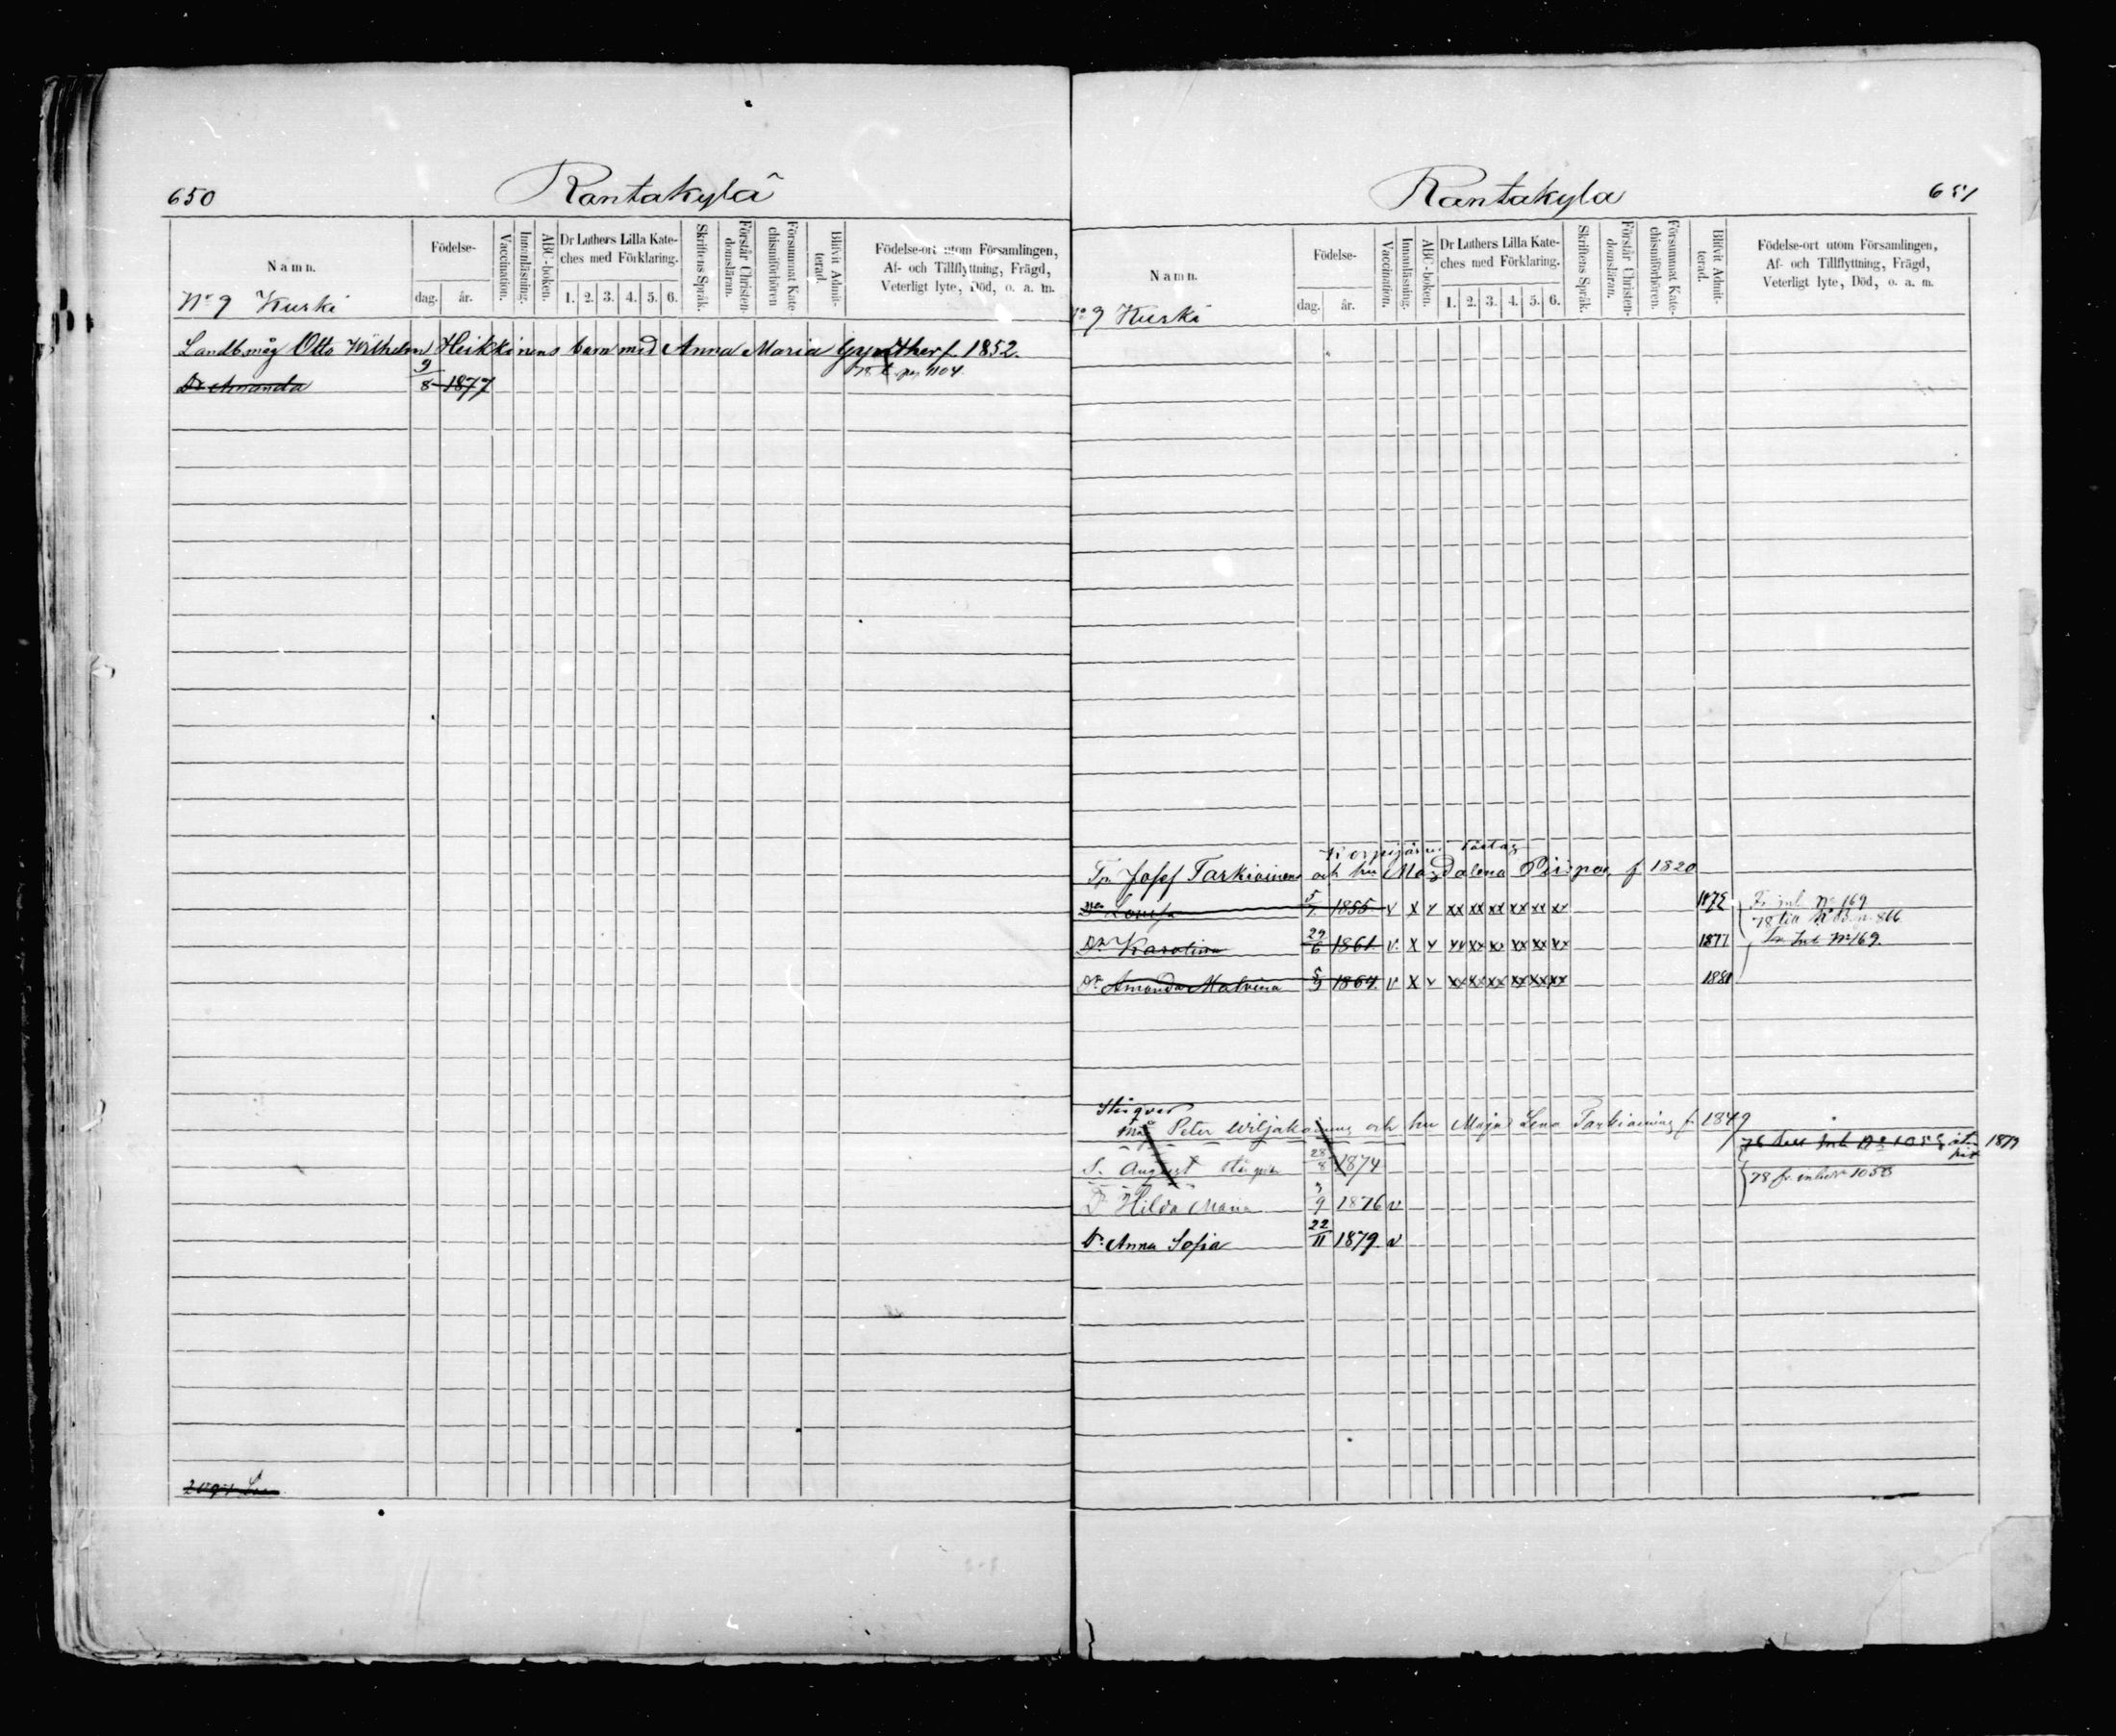 650
Rantakylä
Namn.
Födelse-
dag.
år.
Vaccination.
Innanläsning.
ABC-boken.
Dr Luthers Lilla Kate-
ches med Förklaring.
1. 2. 3. 4. 5. 6.
Skriftens Språk.
Förstår Christen-
domsläran.
Försummat Kate-
chismiförhören
Blifvit Admit-
terad.
Födelse-ort utom Församlingen,
Af- och Tillflyttning, Frägd,
Veterligt lyte, Död, o. a. m.
No 9 Kurski
Landb.måg Otto Wilhelm Heikkinens barn med Anna Maria f. 1852.
Dr Amanda 9/8 1877 pag 1104.
Rantakyla
651
Namn.
Födelse-
dag.
år.
Vaccination.
Innanläsning.
ABC-boken.
Dr Luthers Lilla Kate-
ches med Förklaring.
1. 2. 3. 4. 5. 6.
Skriftens Språk.
Förstår Christen-
domsläran.
Försummat Kate-
chismiförhören.
Blifvit Admit-
terad.
Födelse-ort utom Församlingen,
Af- och Tillflyttning, Frägd,
Veterligt lyte, Död, o. a. m.
No 9 Kurski
Tp. Josef Tarkiainens och hu Magdalena Piispa f 1820
Dr Lovisa 5/7 1855 v x v xx xx xx xx xx xx Fr inh No 169
Dr Karolina 29/6 1861. v. x v xx xx xx xx xx xx 1877 fr. Inh No 169.
Dr Amanda Malvina 5/9 1864. v x v xx xx xx xx xx xx 1881
måg Peter Wiljakainens och hu Maja Lena Tarkiainens f. 1849
1879
S. August 28/8 1874
78 fr. inh No 1058
Dr Hilda Maria 3/9 1876 v
Dr Anna Sofia 22/11 1879. v